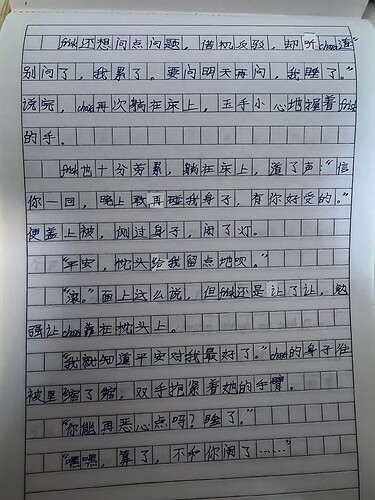 first还想问点问题，借机反驳，却听chao道"
别问了，我累了。要问明天再问，我睡了。"
说完，chao再次躺在床上，玉手小心地握着first
的手。
first也十分劳累，躺在床上，道了声："信
你一回，晚上敢再碰我身子，有你好受的。"
便盖上被，侧过身子，闭了灯。
"平安，枕头给我留点地呗。"
"滚。"面上这么说，但first还是让了让，勉
强让chao靠在枕头上。
"我就知道平安对我最好了。"chao的身子往
被里缩了缩，双手抱紧着她的手臂。
"你能再恶心点吗？睡了。"
"嘿嘿，算了，不和你闹了……"